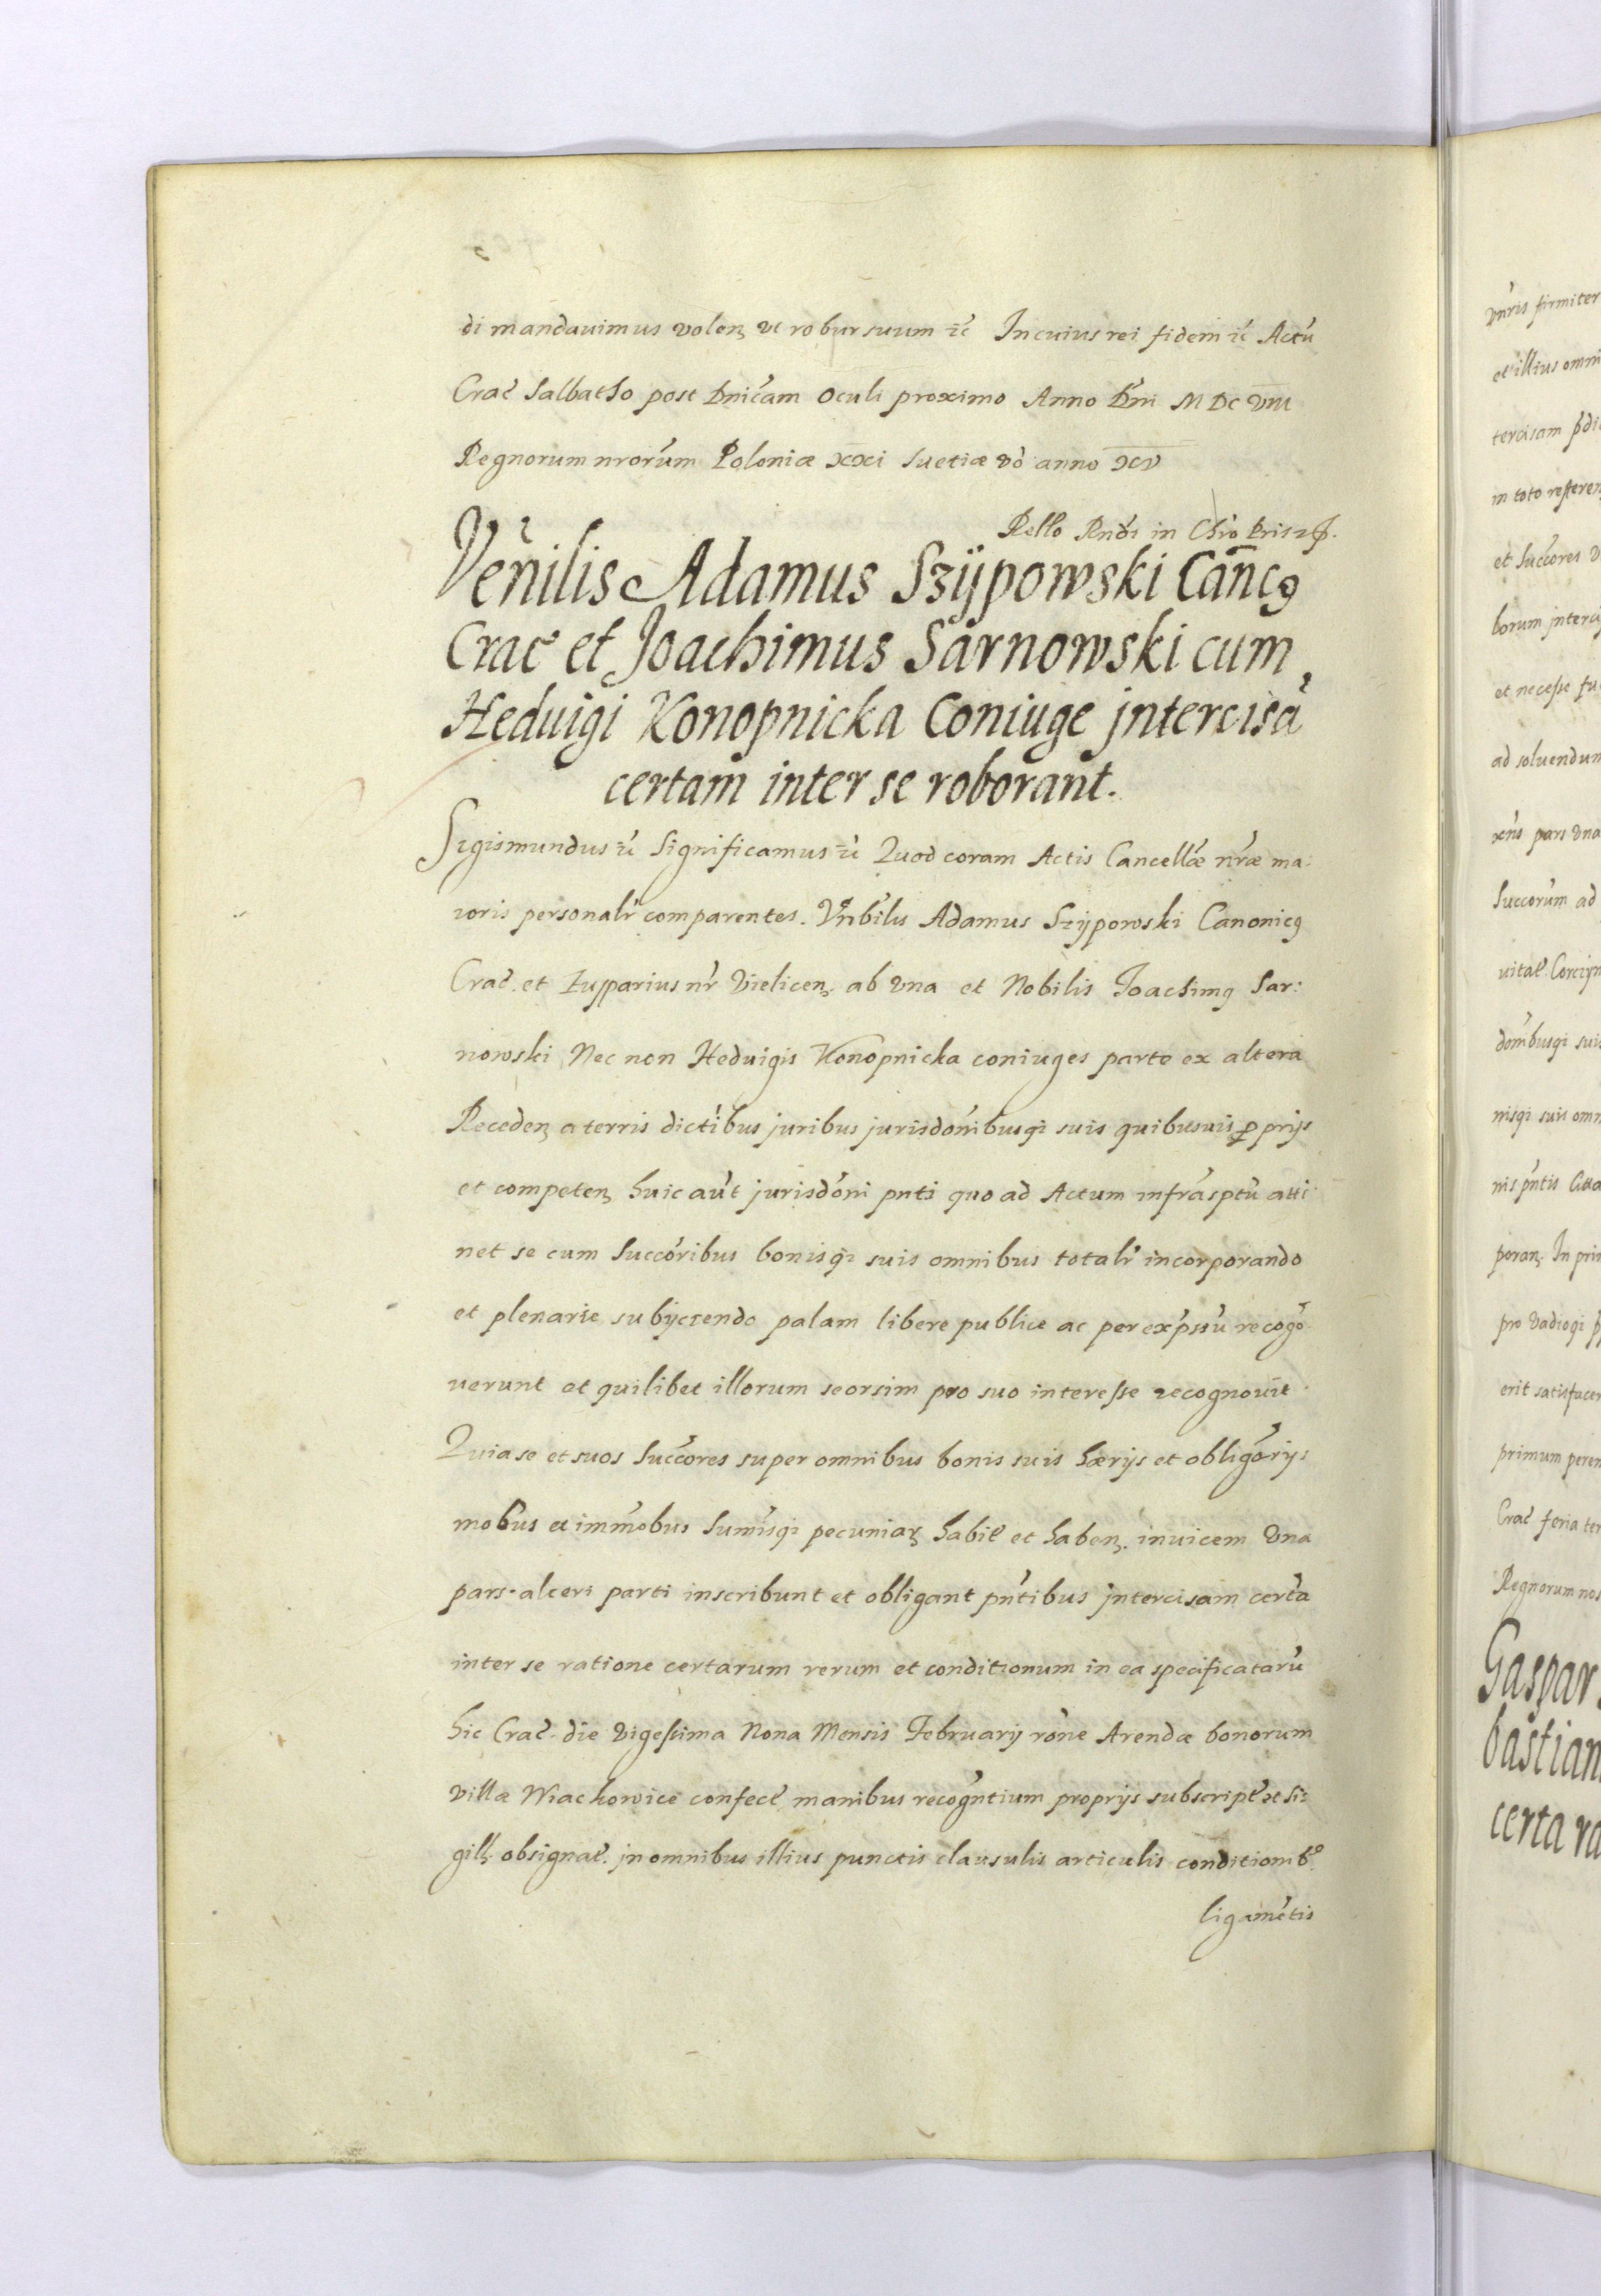 di mandavimus volenȝ ut robur suum zc̃ In cuius rei fidem zc̃ Actũ
Crac̃ Sabbatho post Dñicam Oculi proximo Anno Dñi MDC VIII
Regnorum nrorũm Poloniæ xxi Suetiæ vò anno xv
Rello Rndi in Chro Pris
Vẽnilis Adamus Szÿpowski Cãncꝯ
Crac̃ et Joachimus Sarnowski cum
Heduigi Konopnicka Coniuge jntercisã
certam inter se roborant.
Sigismundus zc̃ Significamus zc̃ Quod coram Actis Cancellæ nr̃æ ma:
ioris personalr̃ comparentes. Vñbilis Adamus Szÿpowski Canonicꝯ
Crac̃. et Zupparius nr̃ Vielicenȝ ab vna et Nobilis Joachimꝯ Sar:
nowski Nec non Heduigis Konopnicka coniuges parte ex altera
Recedenȝ a terris dictĩbus juribus jurisdõnibusqꝫ suis quibusuis ꝓprijs
et competenȝ huic aũt jurisdõni pnti quo ad Actum infrãsptũ atti
net se cum Succõribus bonisqꝫ suis omnibus totalr̃ incorporando
et plenarie subijciendo palam libere publice ac per exp̃ssũ recogõ
uerunt et quilibet illorum seorsim pro suo interesse recognouit
Quia se et suos Succ̃ores super omnibus bonis suis hærijs et obligãrijs
mobũs et imm̃obus Sum̃isqꝫ pecuniarȝ habit̃ et habenȝ. inuicem vna
pars alteri parti inscribunt et obligant pñtibus jntercisam certã
inter se ratione certarum rerum et conditionum in ea specificatarũ
hic Crac̃. die vigessima Nona Mensis Februarij rõne Arendæ bonorum
villæ Wiachowice confect̃ manibus recõgntium proprijs subscript̃ et Si:
gillȝ obsignat̃. jn omnibus illius punctis clausulis articulis conditionibꝯ
ligamẽtis
vñris firmiter
et illius omni
tercisam p̃di
in toto
et Succ̃ores
borum
et necesse fu
ad soluendum
pars vna
Succorũm ad
dom̃ibusqꝫ suis
nisqꝫ suis omn
nis pñtis
In pri
pro vadioqꝫ
erit satisfacer
primum
Crac̃ feria ter
Regnorum nos
Gaspar
bastian
certa ra